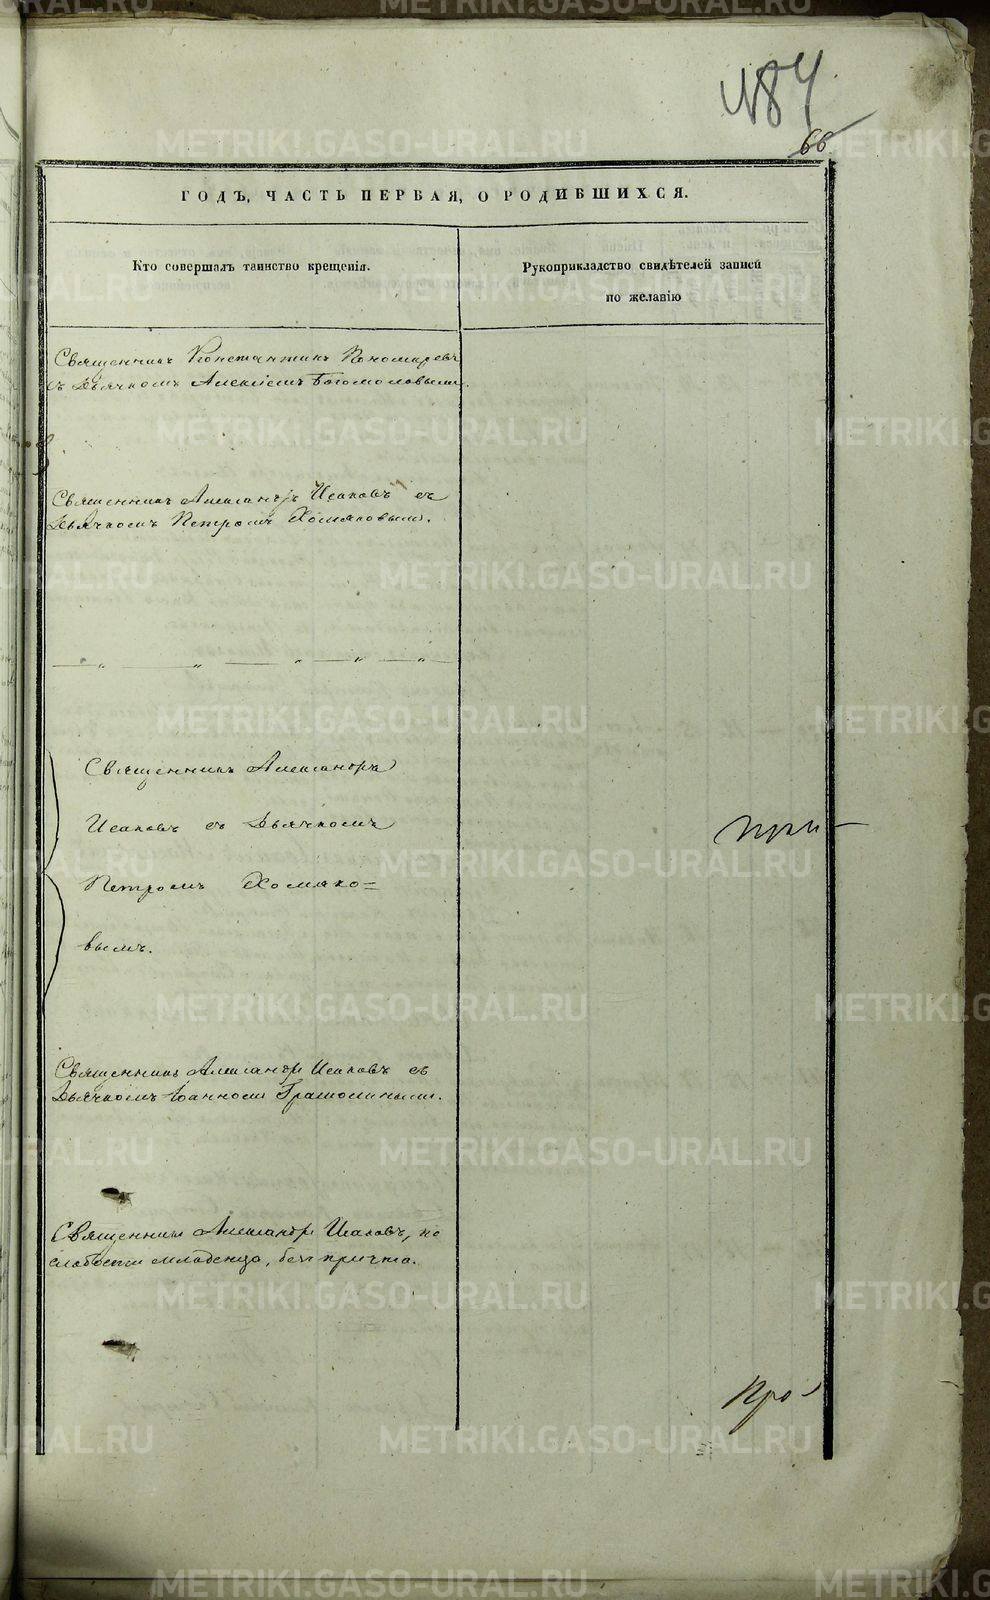 484
66
ГОДЪ, ЧАСТЬ ПЕРВАЯ, О РОДИВШИХСЯ.
Кто совершалъ таинство крещенія.
Рукоприкладство свидѣтелей записи
по желанію
Священникъ Константинъ Пономаревъ
съ Дьячкомъ Алексіемъ Богомоловымъ.
Священникъ Александръ Исаковъ съ
Дьячкомъ Петромъ Хомяковымъ.
— „ — „ — „ — „ —
Священникъ Александръ
Исаковъ съ Дьячкомъ
Петромъ Хомяко=
вымъ.
При-
Священникъ Александръ Исаковъ съ
Дьячкомъ Іоанномъ
Священникъ Александръ Исаковъ, по
слабости младенца, безъ причта.
Про-
METRIKI.GASO-URAL.RU